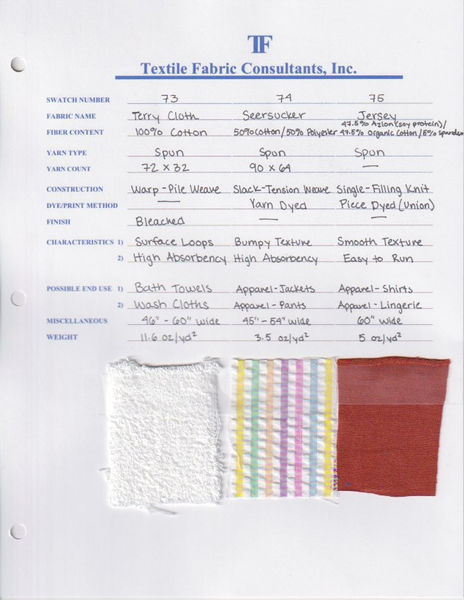 TF
Textile Fabric Consultants, Inc.
SWATCH NUMBER 73 74 75
FABRIC NAME Terry Cloth Seersucker Jersey
47.5% Azlon (soy protein)/
FIBER CONTENT 100% Cotton 50% Cotton/50% Polyester 47.5% Organic Cotton/5% Spandex
YARN TYPE Spun Spun Spun
YARN COUNT 72 x 32 90 x 64 —
CONSTRUCTION Warp-Pile Weave Slack-Tension Weave Single-Filling Knit
DYE/PRINT METHOD — Yarn Dyed Piece Dyed (Union)
FINISH Bleached — —
CHARACTERISTICS 1) Surface Loops Bumpy Texture Smooth Texture
2) High Absorbency High Absorbency Easy to Run
POSSIBLE END USE 1) Bath Towels Apparel-Jackets Apparel-Shirts
2) Wash Cloths Apparel-Pants Apparel-Lingerie
MISCELLANEOUS 46" - 60" wide 45" - 54" wide 60" wide
WEIGHT 11.6 oz/yd² 3.5 oz/yd² 5 oz/yd²